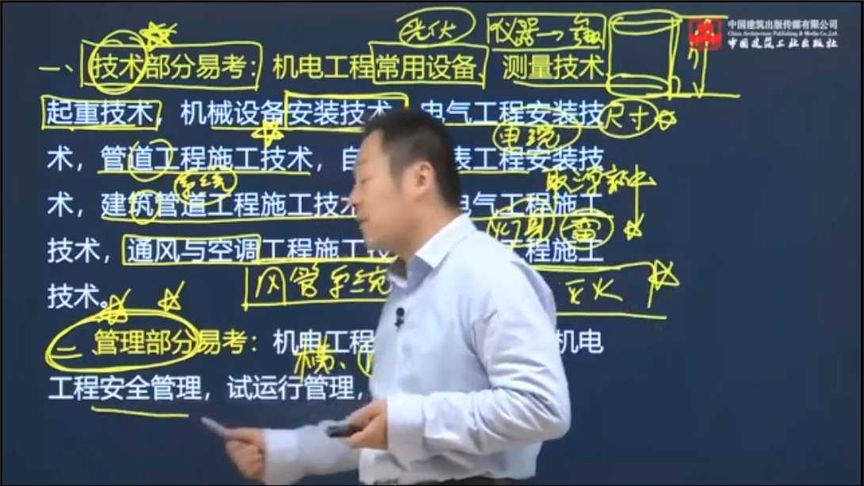 中国建筑出版传媒有限公司
China Architecture Publishing & Media Co.,Ltd.
中国建筑工业出版社
光伏
仪器
一、技术部分易考：机电工程常用设备、测量技术
起重技术，机械设备安装技术，电气工程安装技
尺寸
电缆
术，管道工程施工技术，自 表工程安装技
系统
术，建筑管道工程施工技术 电气工程施工
灯具 雷
技术，通风与空调工程施工技 工程施工
风管系统
灭火
技术。
二、管理部分易考：机电工程 机电
工程安全管理，试运行管理，